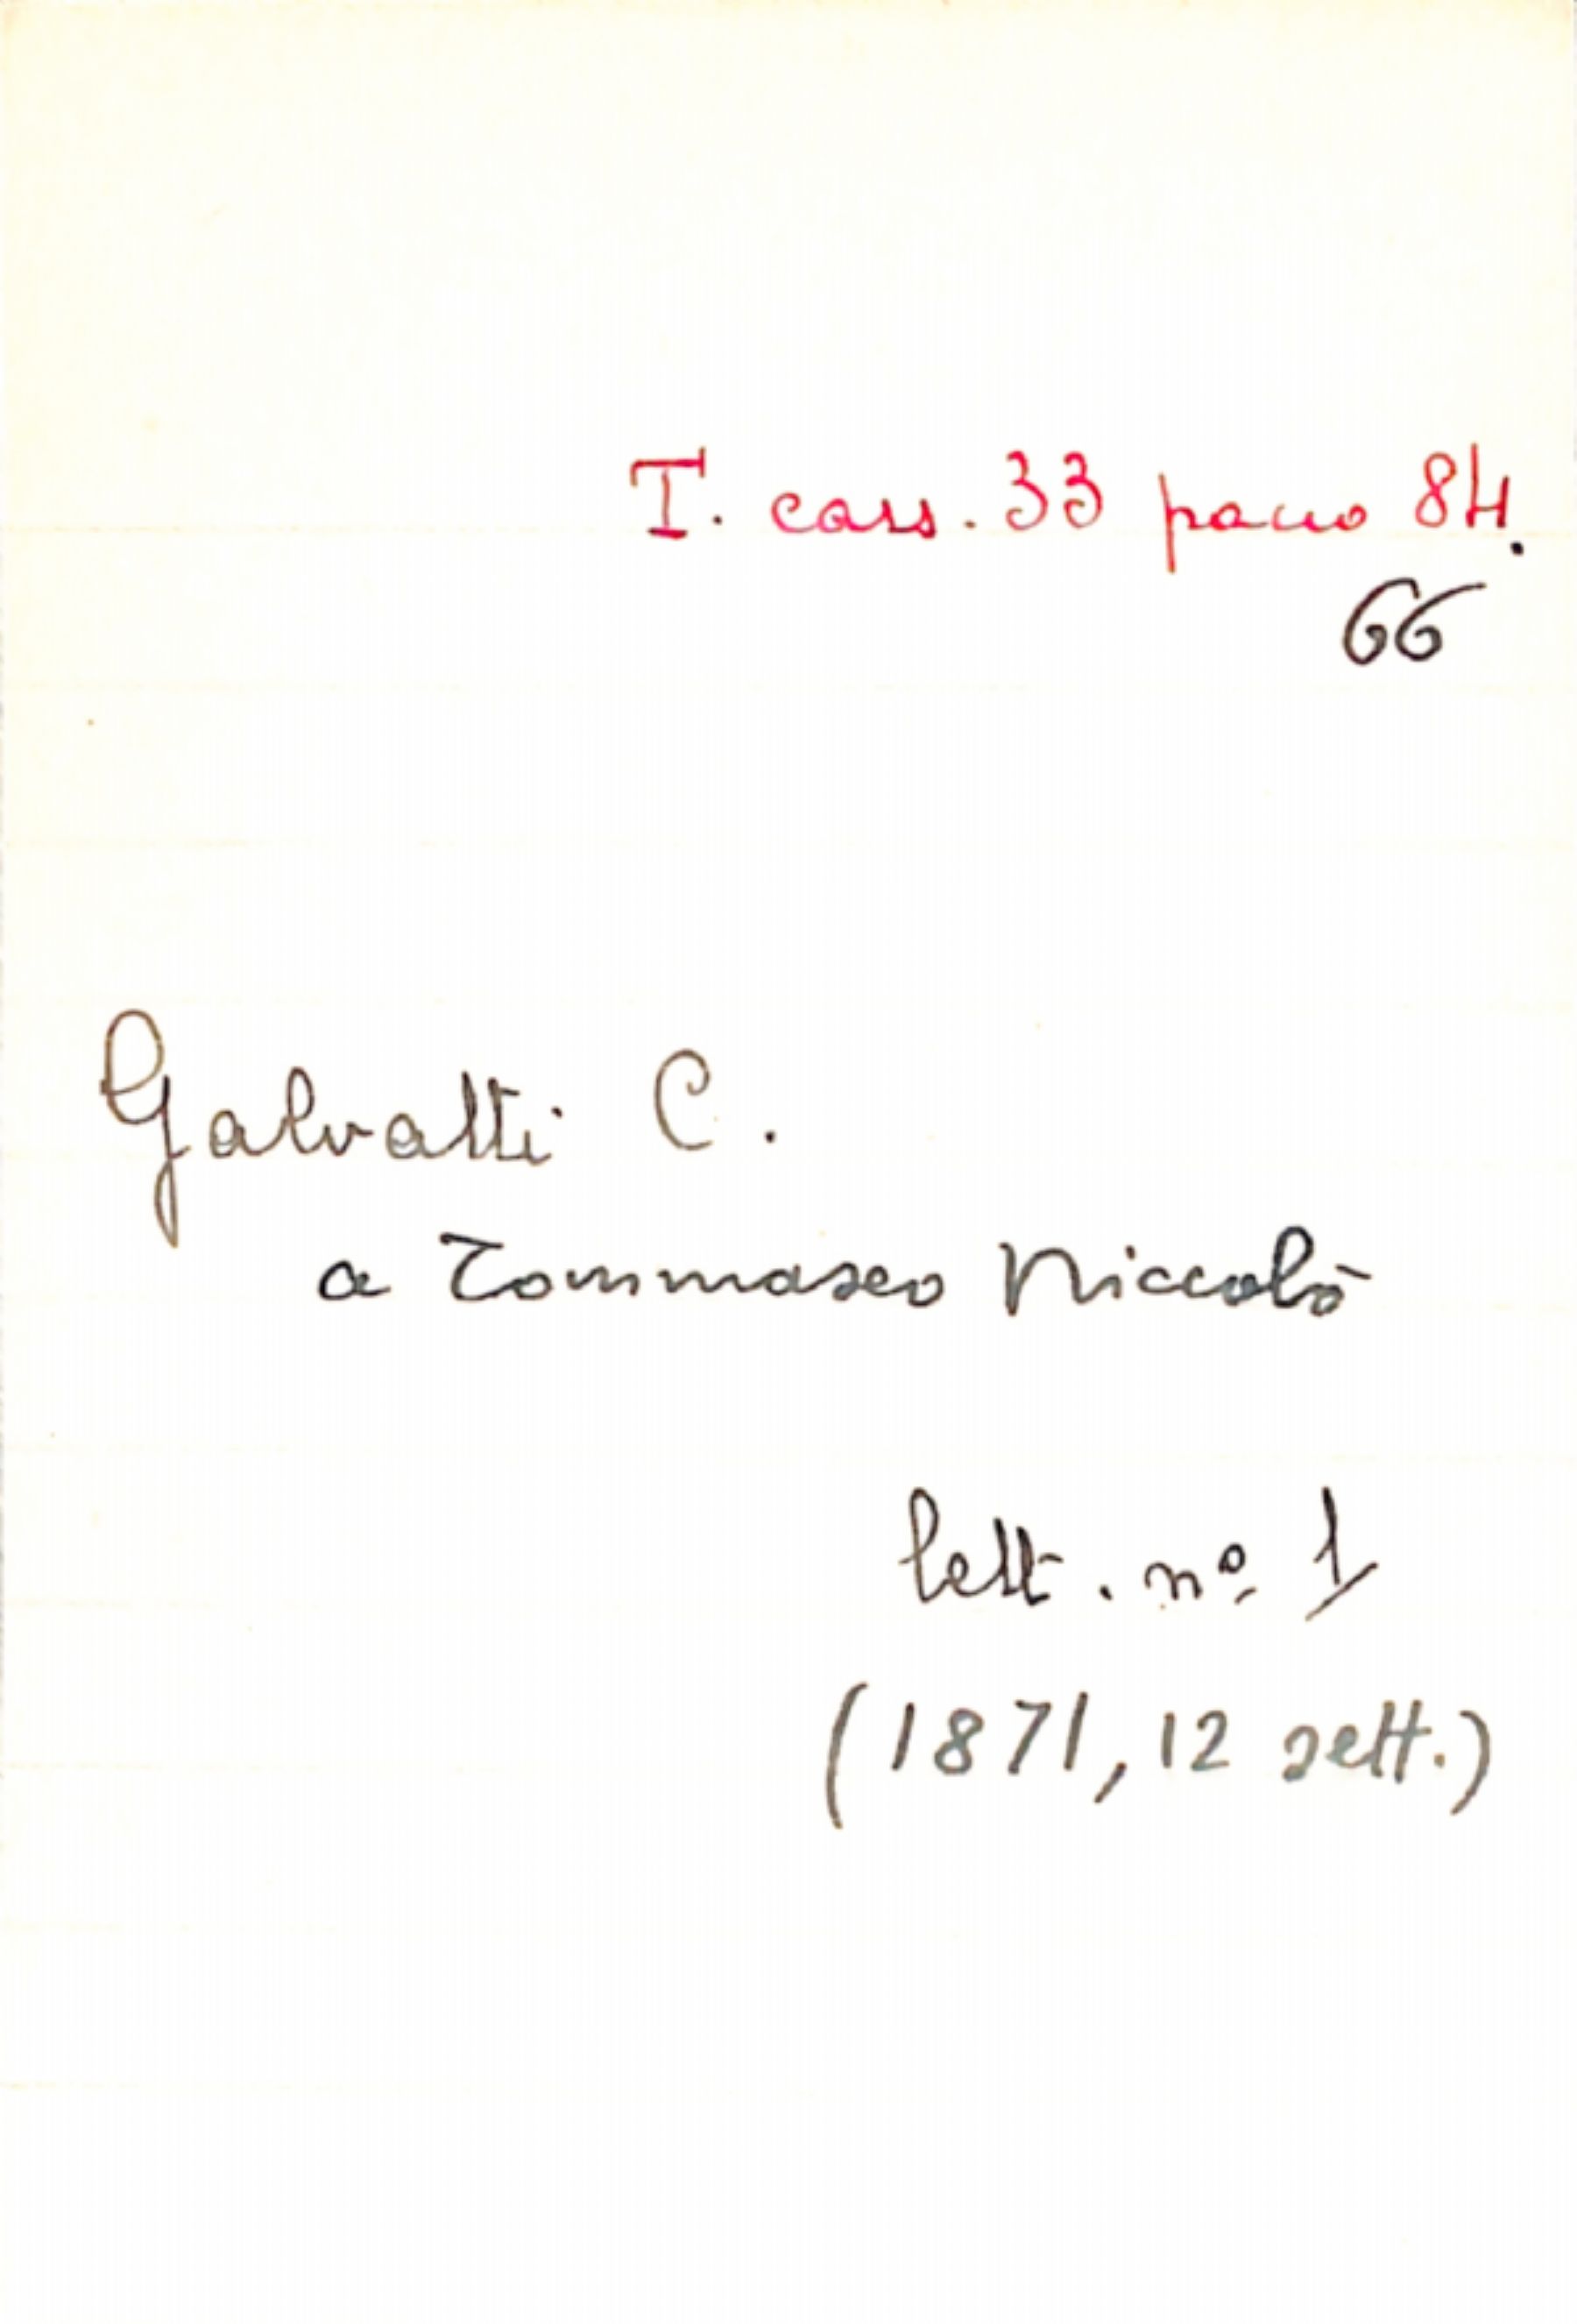 T. cass. 33 pacco 84.
66
Galvatti C.
a Tommaseo Niccolò
lett. nº 1
(1871, 12 sett.)